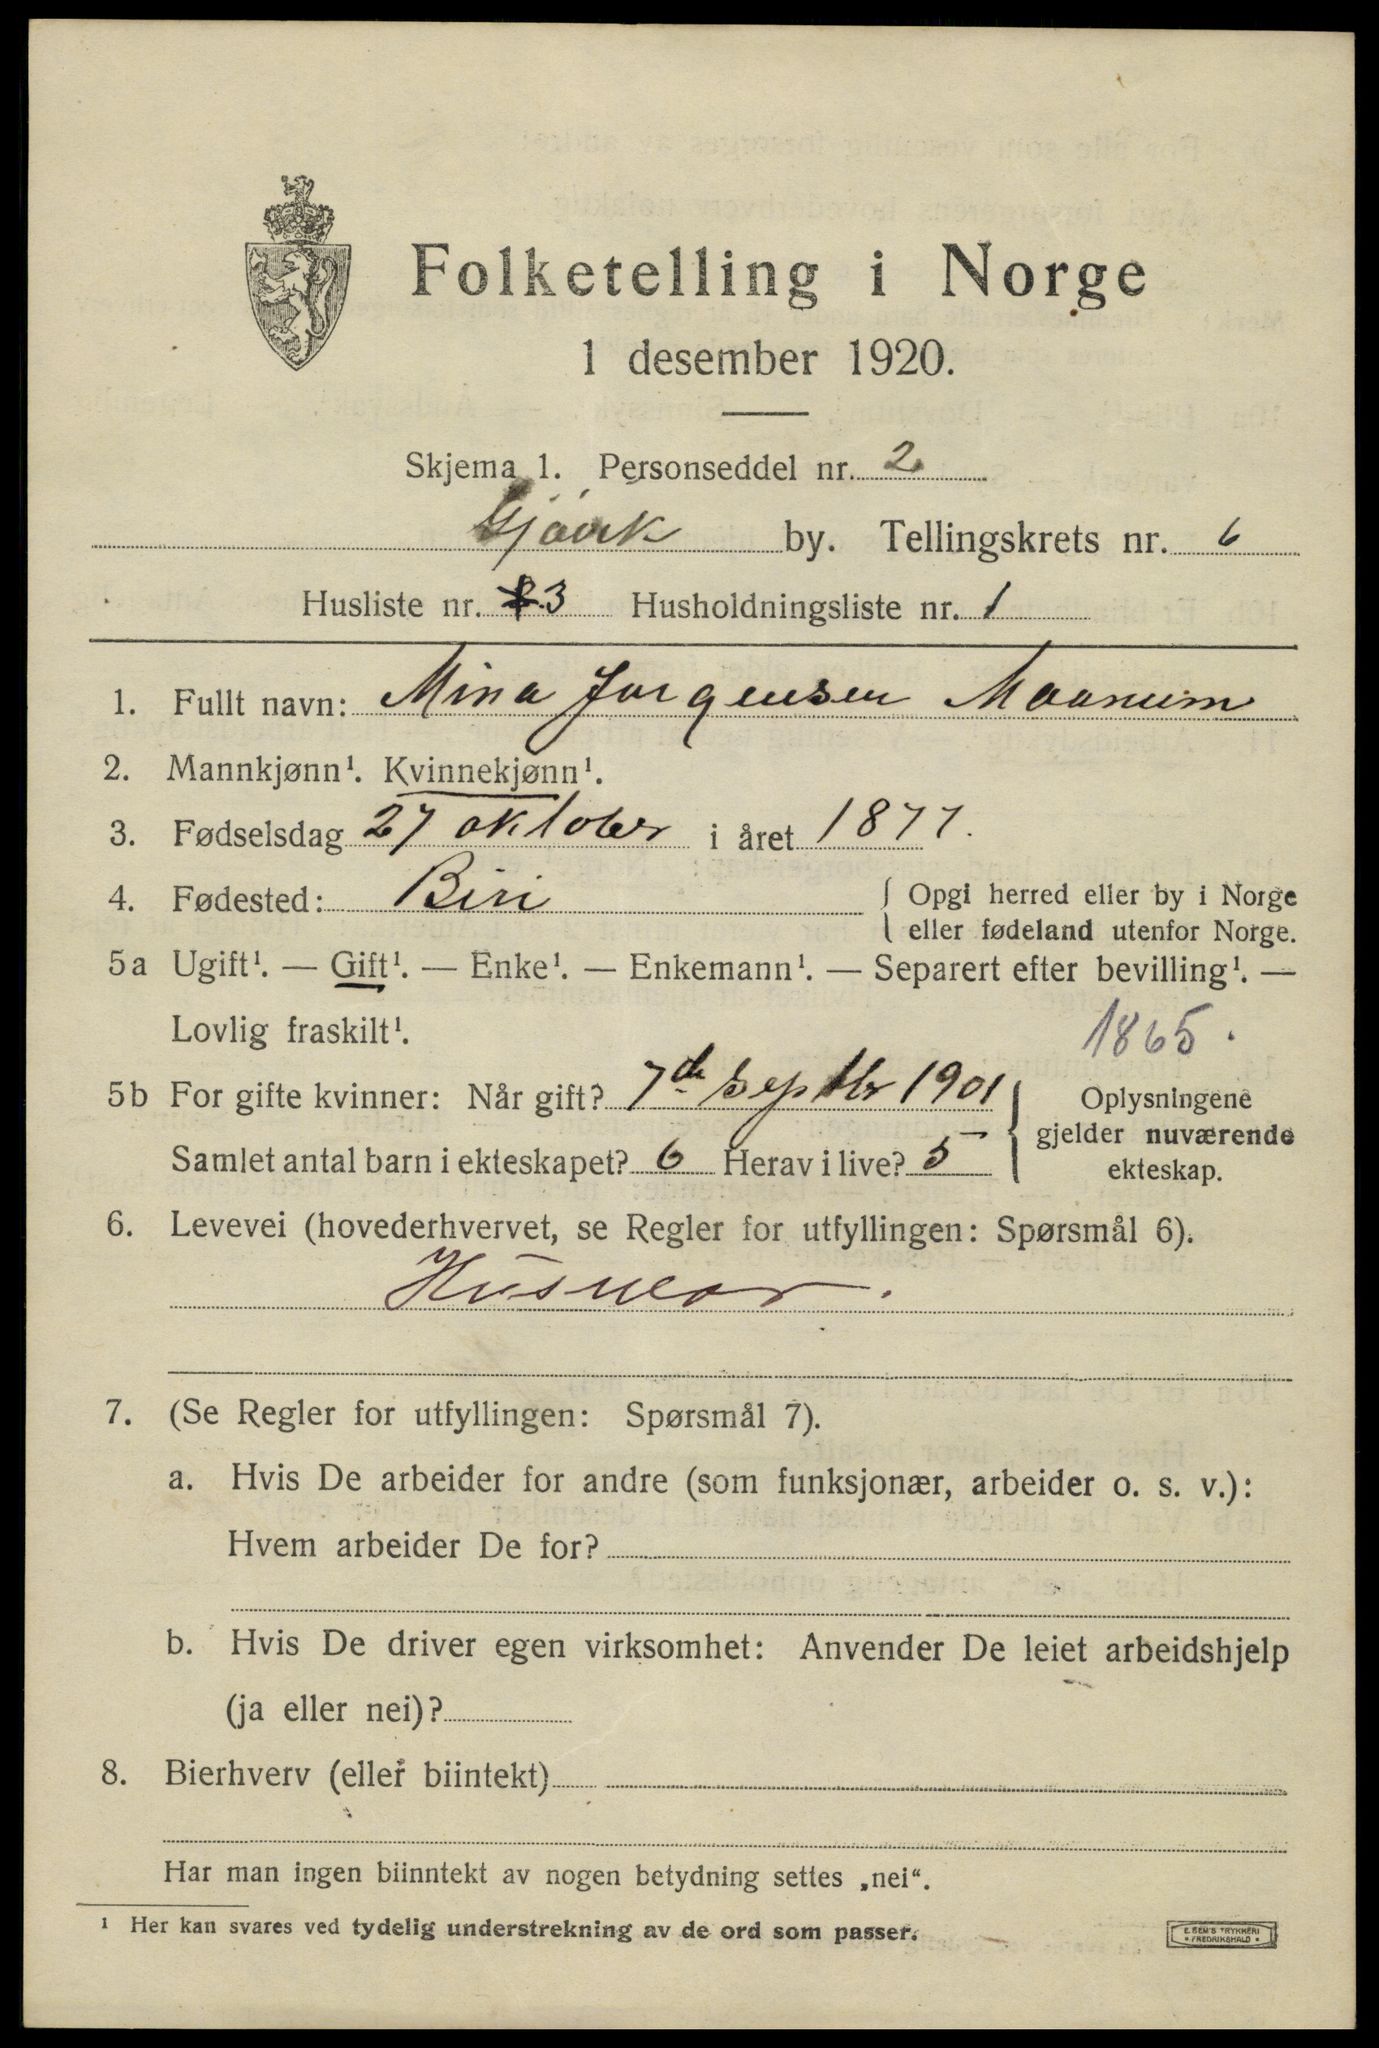 Folketelling i Norge
1 desember 1920.
Skjema 1. Personseddel nr. 2
Gjøvik by. Tellingskrets nr. 6
Husliste nr. 3 Husholdningsliste nr. 1
1. Fullt navn: Mina Jørgensen Maanum
2. Mannkjønn¹. Kvinnekjønn¹.
3. Fødselsdag 27 oktober i året 1877.
4. Fødested: Biri { Opgi herred eller by i Norge
eller fødeland utenfor Norge.
5a Ugift¹. — Gift¹. — Enke¹. — Enkemann¹. — Separert efter bevilling¹. —
Lovlig fraskilt¹. 1865.
5b For gifte kvinner: Når gift? 7de septbr 1901 } Oplysningene
gjelder nuværende
Samlet antal barn i ekteskapet? 6 Herav i live? 5 ekteskap.
6. Levevei (hovederhvervet, se Regler for utfyllingen: Spørsmål 6).
Husmor.
7. (Se Regler for utfyllingen: Spørsmål 7).
a. Hvis De arbeider for andre (som funksjonær, arbeider o. s. v.):
Hvem arbeider De for?
b. Hvis De driver egen virksomhet: Anvender De leiet arbeidshjelp
(ja eller nei)?
8. Bierhverv (eller biintekt)
Har man ingen biinntekt av nogen betydning settes „nei“.
¹ Her kan svares ved tydelig understrekning av de ord som passer.
E. SEM'S TRYKKERI
FREDRIKSHALD